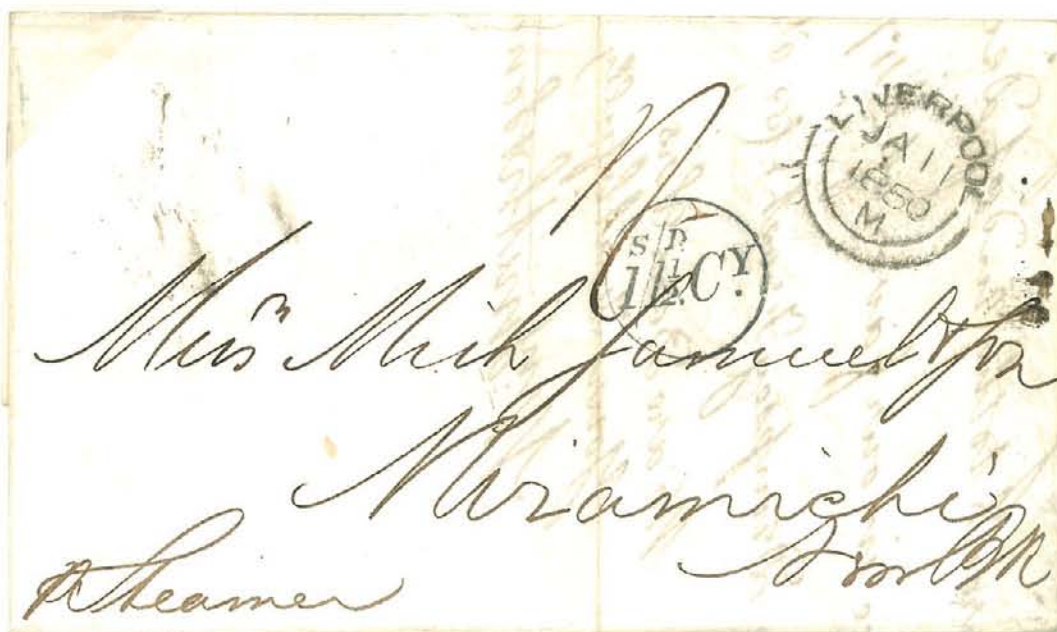 LIVERPOOL
JA 11
1850
M
S D
1/1½ Cy.
Mess^rs Mich Samuel & Son
Miramichi
p Steamer